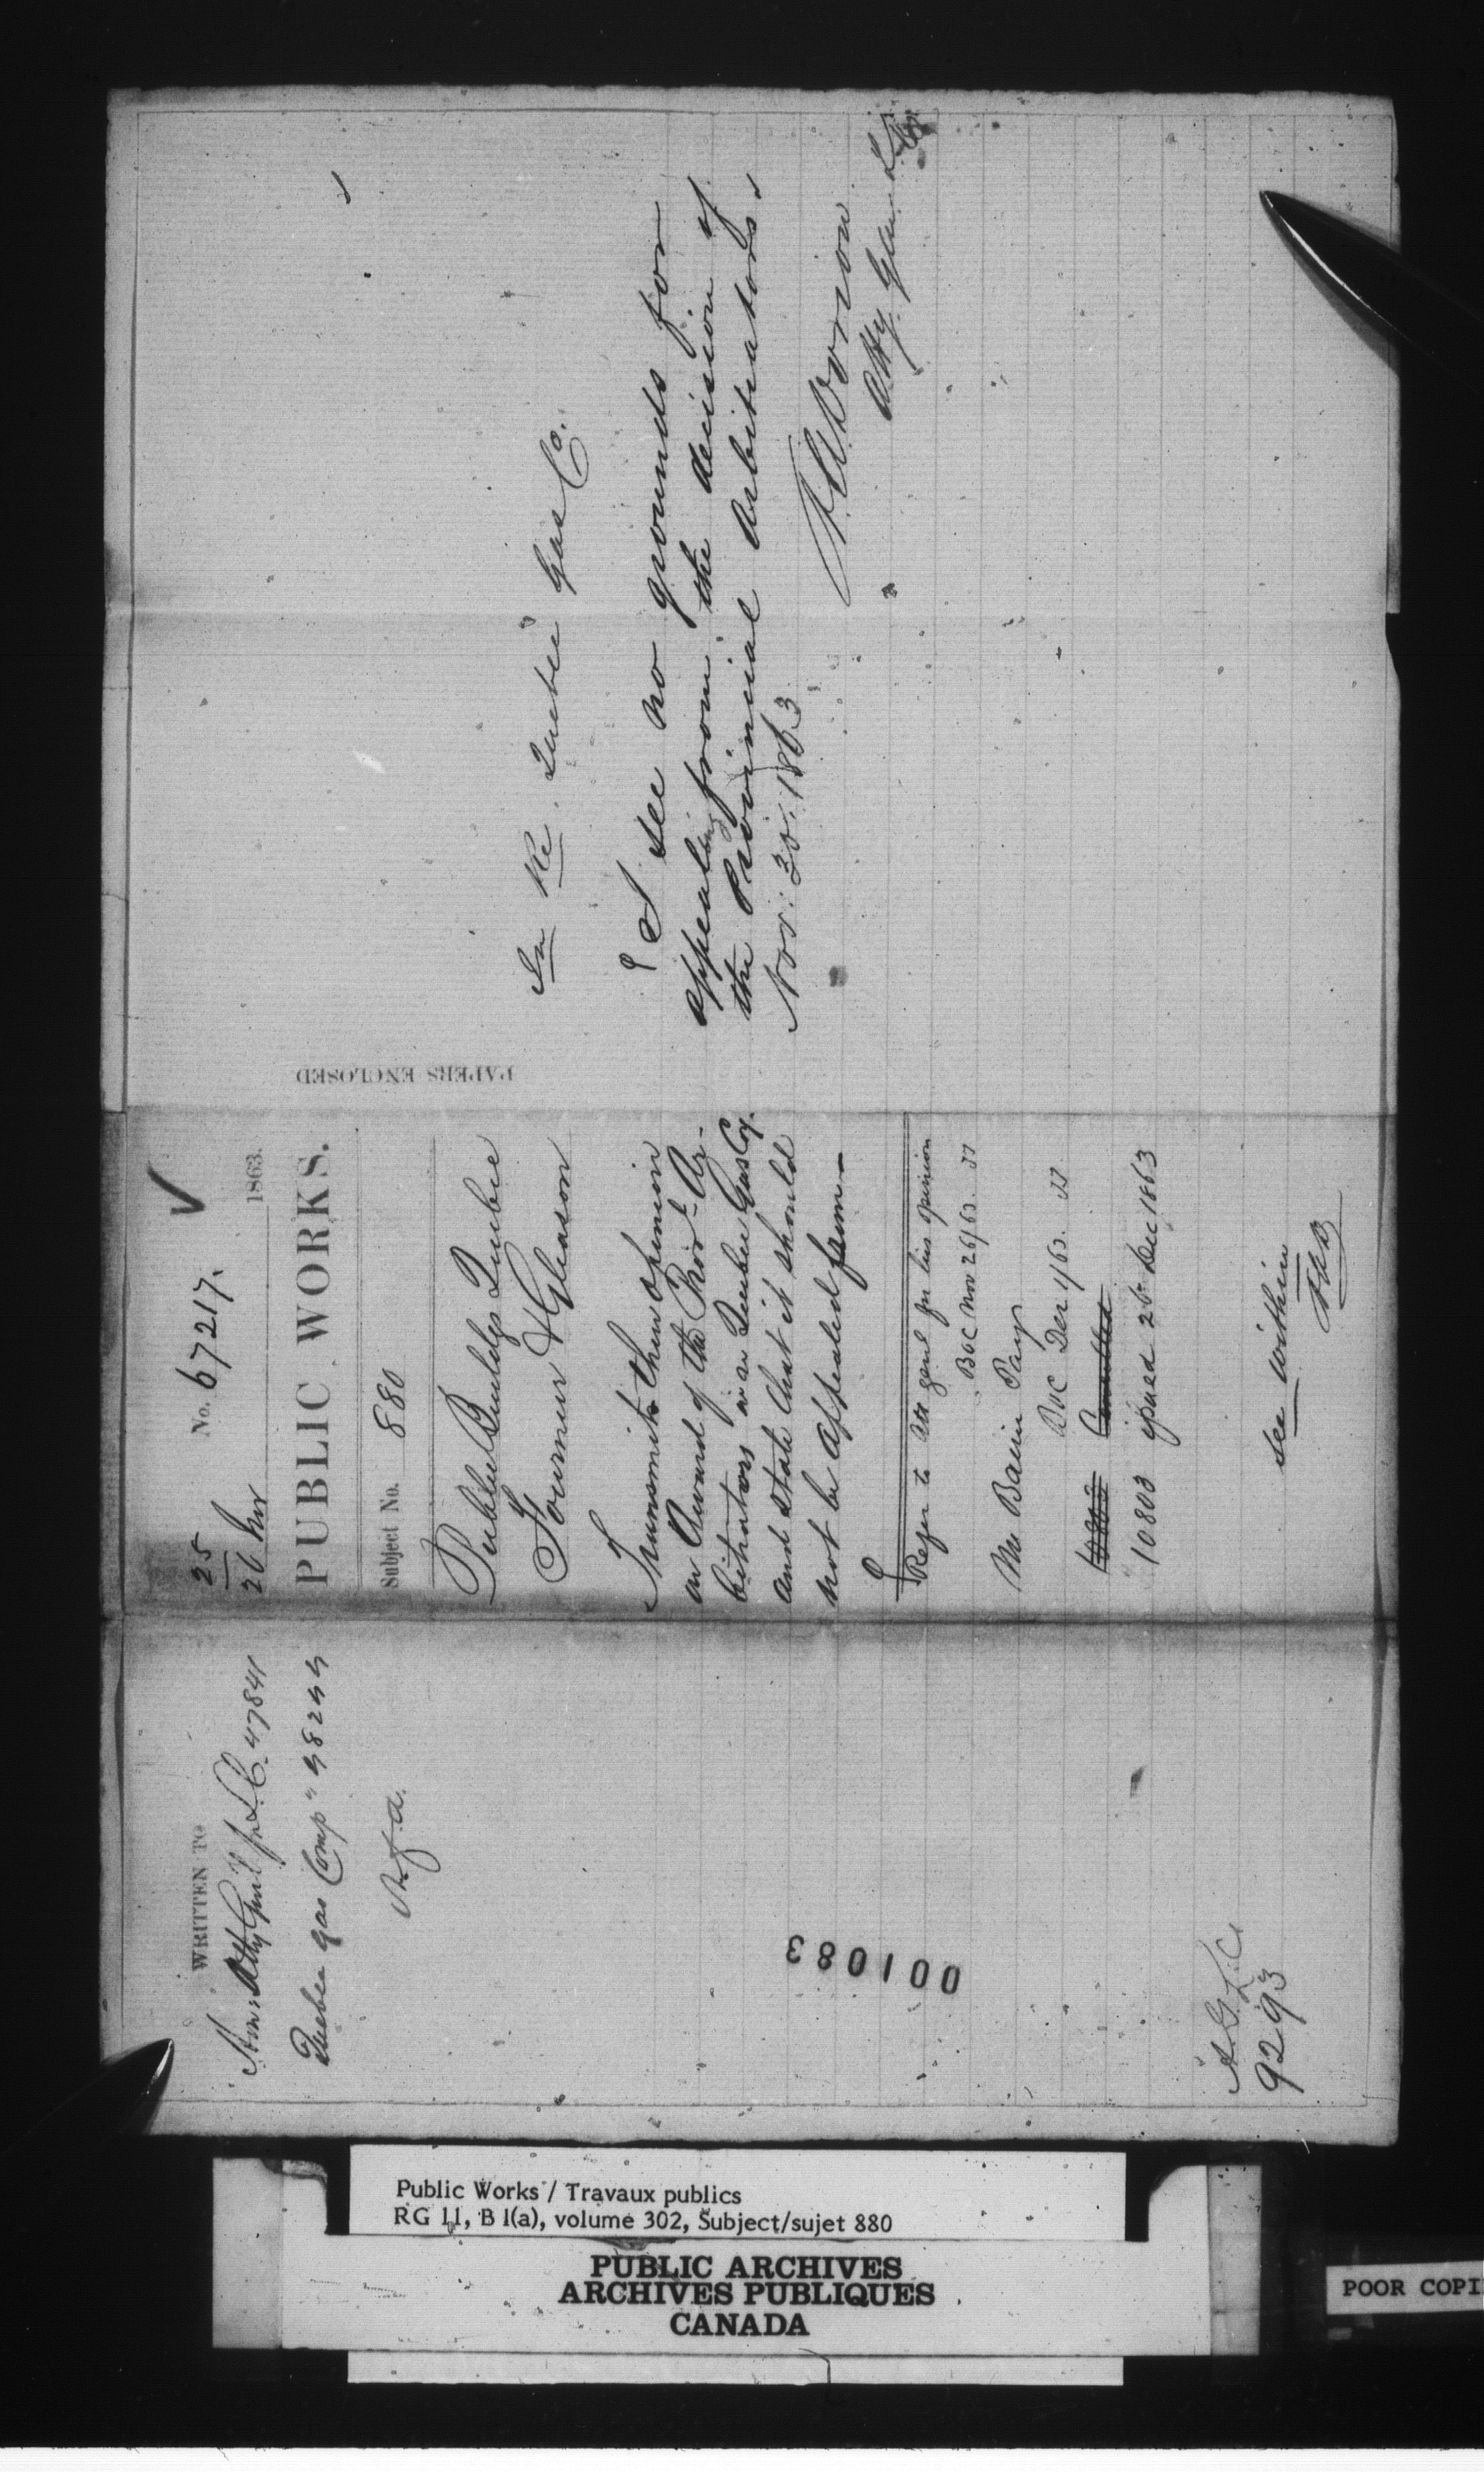 WRITTEN TO
Honr. Atty Genl for L.C. 47841
Quebec Gas Comp" 48244
A.G.L.C.
9293
001083
25
26 Nov
No. 67217.
1863.
PUBLIC WORKS.
Subject No. 880
Public Buildgs Quebec
Fournier & Gleason
Transmits their opinion
on Award of the Provl. Ar-
bitrators in re Quebec Gas Coy.
and state that it should
not be appealed from —
Refer to Att genl for his opinion
Nov 26/63. JJ
Mr Baine Pay
Dec 1/63. JJ
10803
Dec 1863
see within
PAPERS ENCLOSED
In Re. Quebec Gas Co.
I see no grounds for
appealing from the decision of
the Provincial Arbitrators.
Nov: 30. 1863
A A Dorion
Atty. Gen. L.C.
Public Works / Travaux publics
RG 11, B 1(a), volume 302, Subject/sujet 880
PUBLIC ARCHIVES
ARCHIVES PUBLIQUES
CANADA
POOR COPI